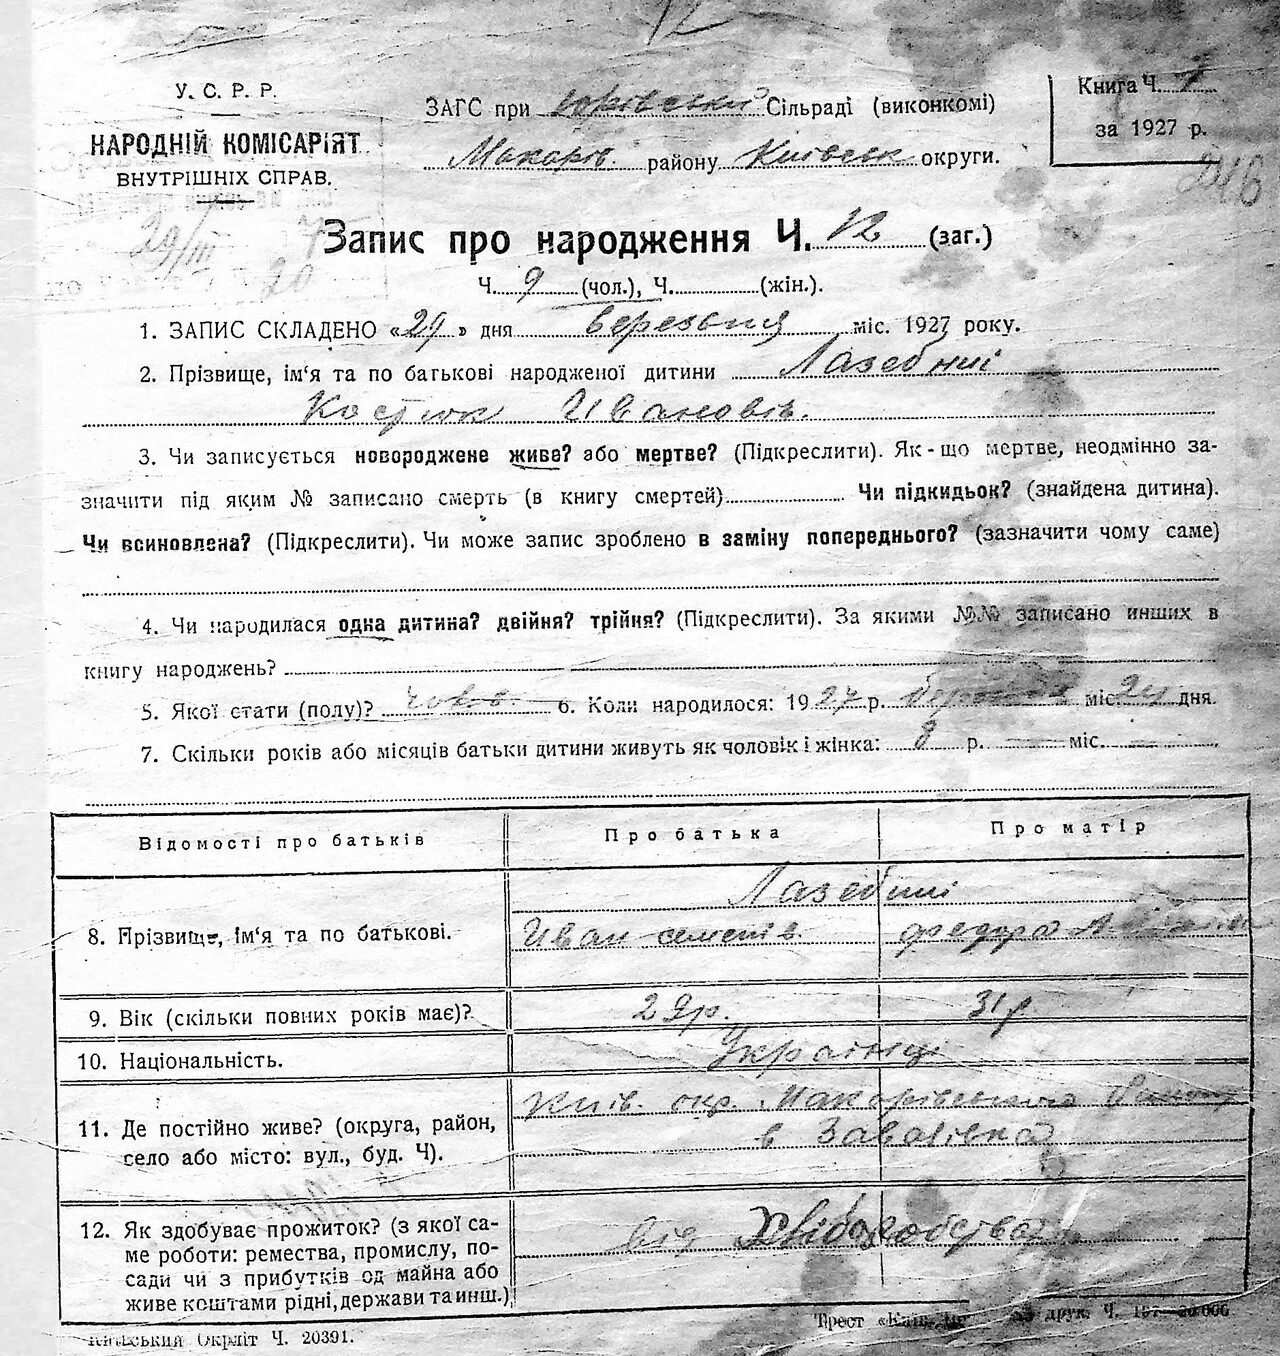 12
У. С. Р. Р.
НАРОДНІЙ КОМІСАРІЯТ
ВНУТРІШНІХ СПРАВ.
ЗАГС при Сільраді (виконкомі)
Макарів. району Київськ округи.
Книга Ч. 1
за 1927 р.
246
29/III
Запис про народження Ч. 12 (заг.)
Ч. 9 (чол.), Ч. (жін.).
1. ЗАПИС СКЛАДЕНО «29» дня березьня міс. 1927 року.
2. Прізвище, ім‘я та по батькові народженої дитини Лазебниі
Костюк Иванові.
3. Чи записується новороджене живе? або мертве? (Підкреслити). Як-що мертве, неодмінно за-
значити під яким № записано смерть (в книгу смертей) Чи підкидьок? (знайдена дитина).
Чи всиновлена? (Підкреслити). Чи може запис зроблено в заміну попереднього? (зазначити чому саме)
4. Чи народилася одна дитина? двійня? трійня? (Підкреслити). За якими №№ записано инших в
книгу народжень?
5. Якої стати (полу)? 6. Коли народилося: 1927 р. міс. дня.
7. Скільки років або місяців батьки дитини живуть як чоловік і жінка: 8 р. — міс. —
Відомості про батьків
Про батька
Про матір
8. Прізвище, ім‘я та по батькові.
Лазебниі
Иван семенів.
федора
9. Вік (скільки повних років має)?
29р.
31р
10. Національність.
Українці
11. Де постійно живе? (округа, район,
село або місто: вул., буд. Ч).
Київ. окр. Макарівського
в Завалівка
12. Як здобуває прожиток? (з якої са-
ме роботи: ремества, промислу, по-
сади чи з прибутків од майна або
живе коштами рідні, держави та инш.)
від Хліборобства
Київський Окрліт Ч. 20391.
Трест друк. Ч.